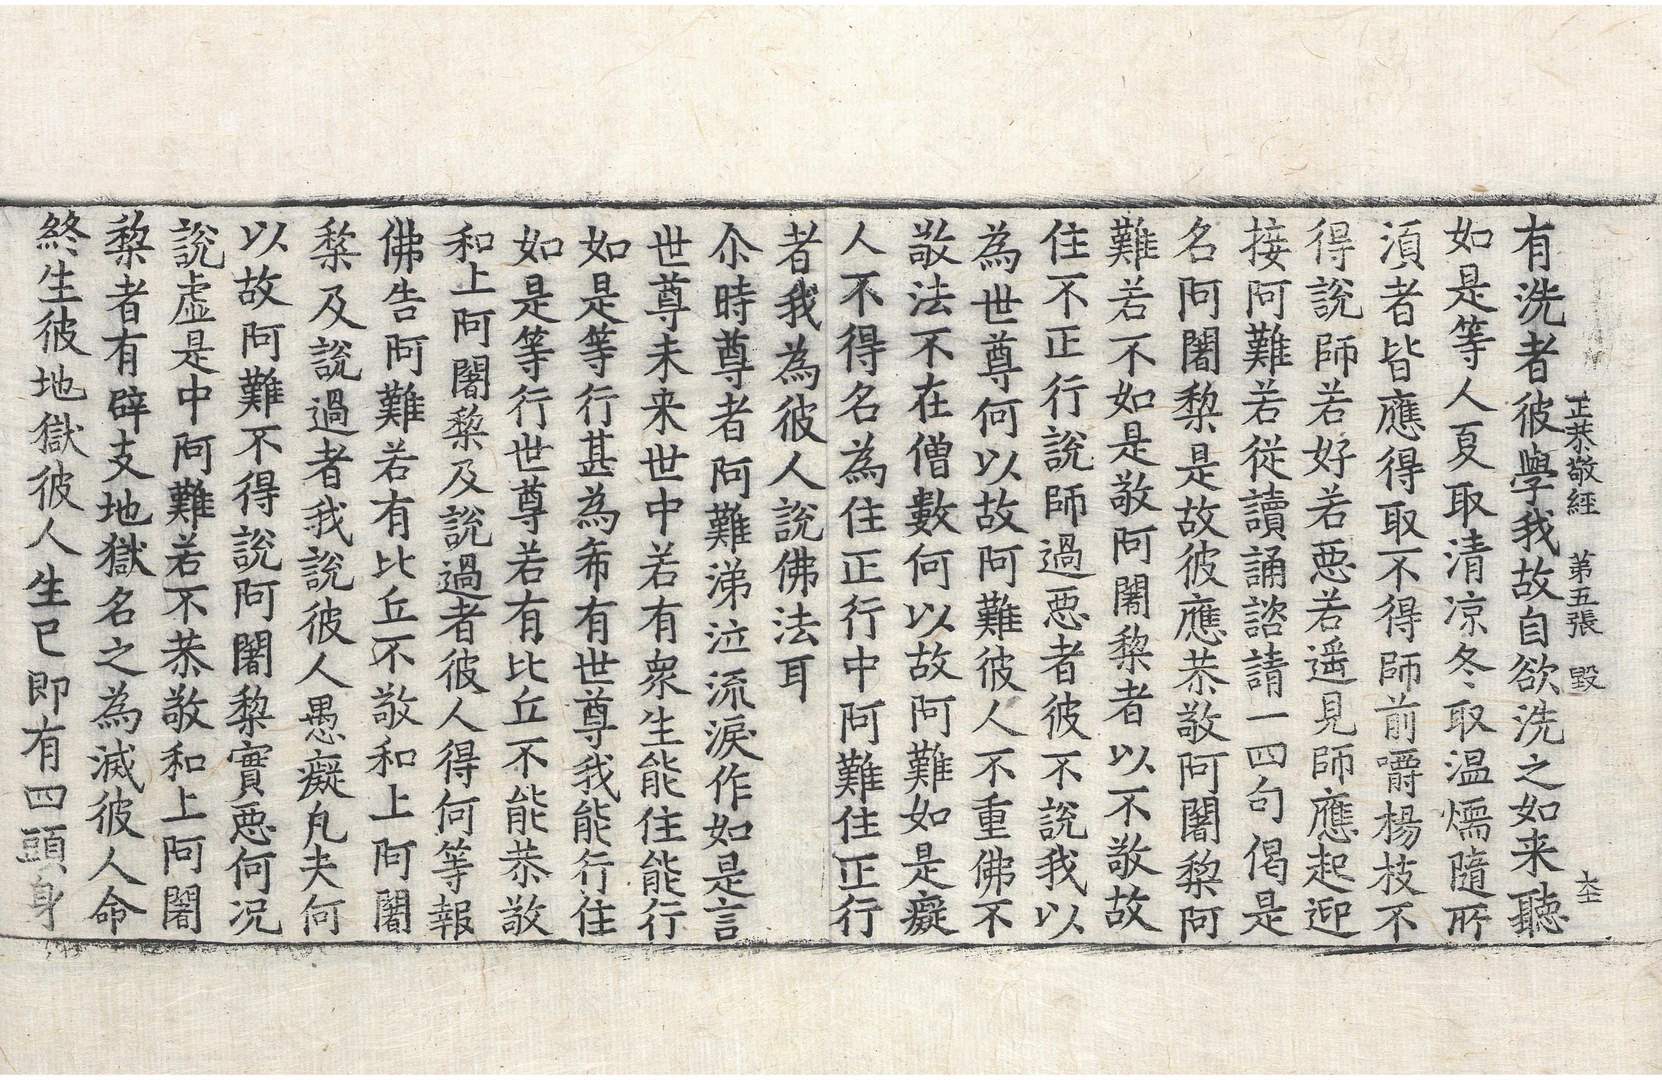 正恭敬經　第五張　毀
有洗者彼學我故自欲洗之如来聽
如是等人夏取清凉冬取温煗隨所
湏者皆應得取不得師前嚼楊枝不
得說師若好若惡若遥見師應起迎
接阿難若從讀誦諮請一四句偈是
名阿闍棃是故彼應恭敬阿闍棃阿
難若不如是敬阿闍棃者以不敬故
住不正行說師過惡者彼不說我以
為世尊何以故阿難彼人不重佛不
敬法不在僧數何以故阿難如是癡
人不得名為住正行中阿難住正行
者我為彼人說佛法耳
尒時尊者阿難涕泣流淚作如是言
世尊未来世中若有衆生能住能行
如是等行甚為希有世尊我能行住
如是等行世尊若有比丘不能恭敬
和上阿闍棃及說過者彼人得何等報
佛告阿難若有比丘不敬和上阿闍
棃及說過者我說彼人愚癡凡夫何
以故阿難不得說阿闍棃實惡何况
說虛是中阿難若不恭敬和上阿闍
棃者有辟支地獄名之為滅彼人命
終生彼地獄彼人生已即有四頭身